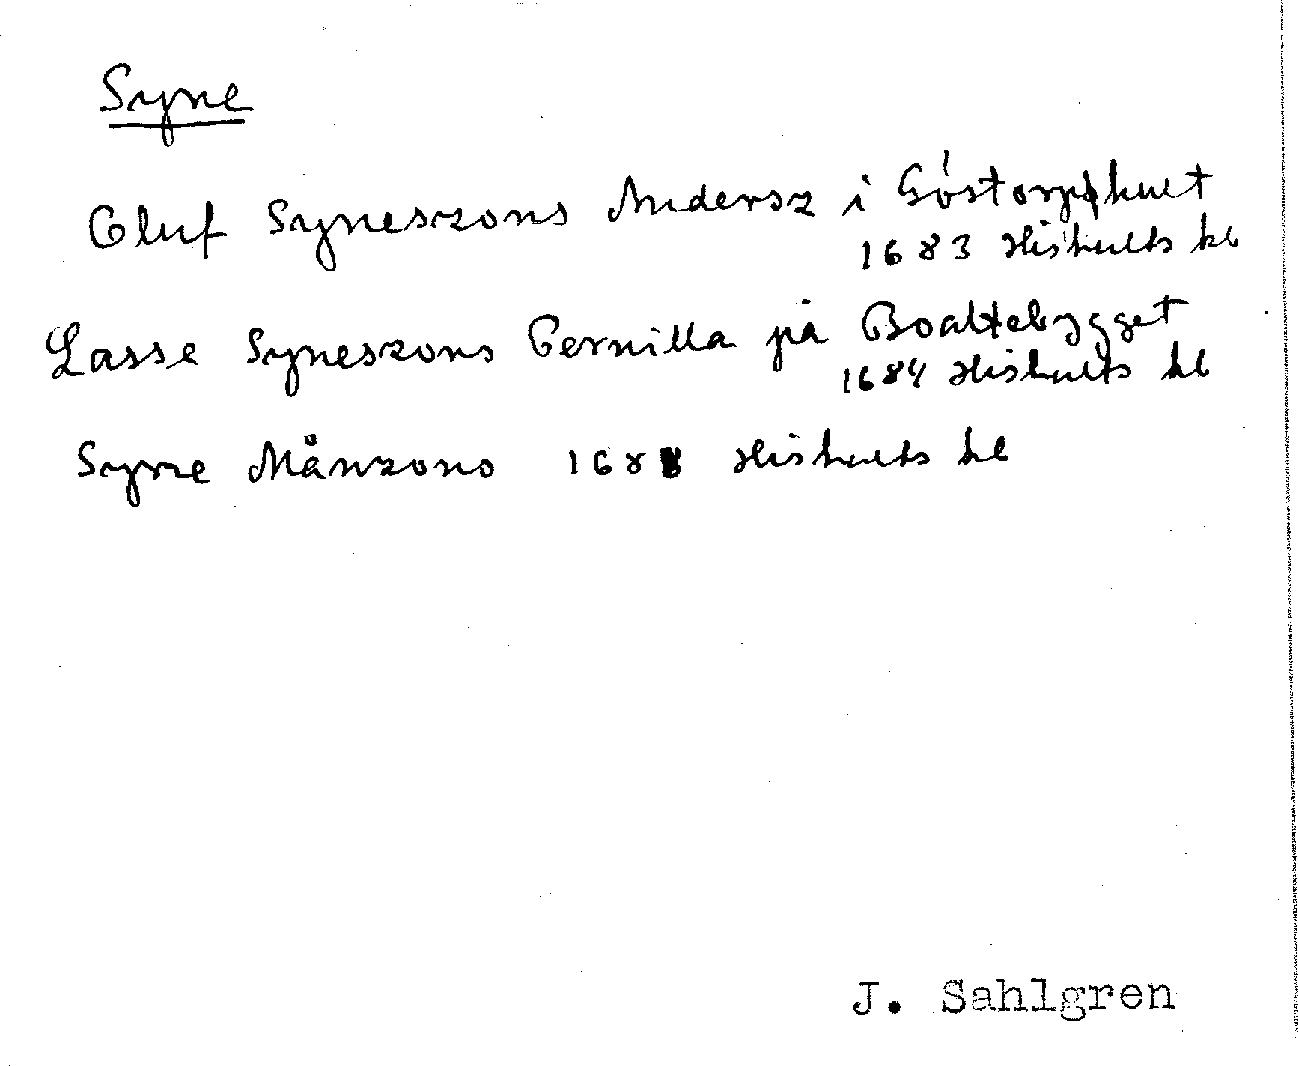 Syne
Oluf Syneszons Andersz i Göstorp hult
1683 Hishults kb
Lasse Syneszons Pernilla på Boaltebygget
1684 Hishults kb
Syne Månzons 168 Hishults kb
J. Sahlgren